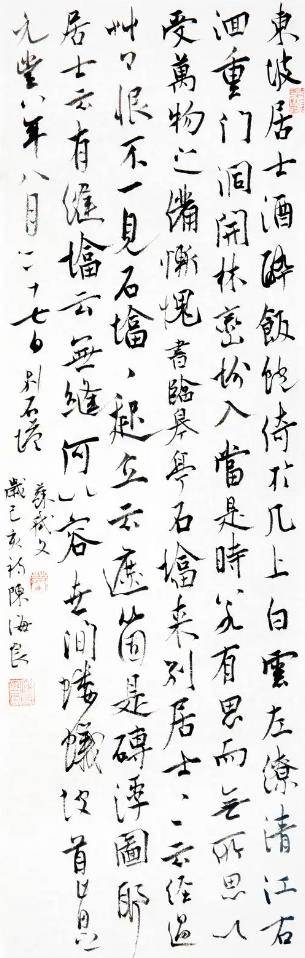 東坡居士酒醉飯飽倚於几上白雲左繚清江右
洄重门洞開林巒坌入當是時若有思而無所思以
受萬物之備慚愧書臨皋亭石墖来別居士、、云經過
艸々恨不一見石墖、起立云遮箇是磚浮圖耶
居士云有縫墖云無縫何以容世間螻蟻坡首肯之
元豐八年八月二十七日別石塔
蘇軾文
歲己亥秋陳海良